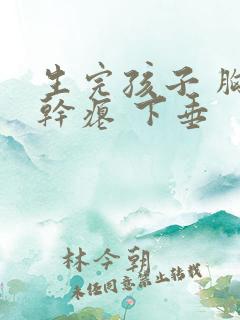 生完孩子 胸
幹癟 下垂
林今朝
未经同意禁止转载